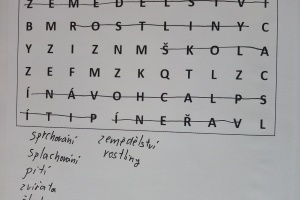 Z E M Ě D Ě L S T V Í
B M R O S T L I N Y C
Y Z I Z N M Š K O L A
Z E F M Z K Q T L Z C
Í N Á V O H C A L P S
Í T I P Í N E Ř A V L
sprchování zemědělství
splachování rostliny
pití
zvířata